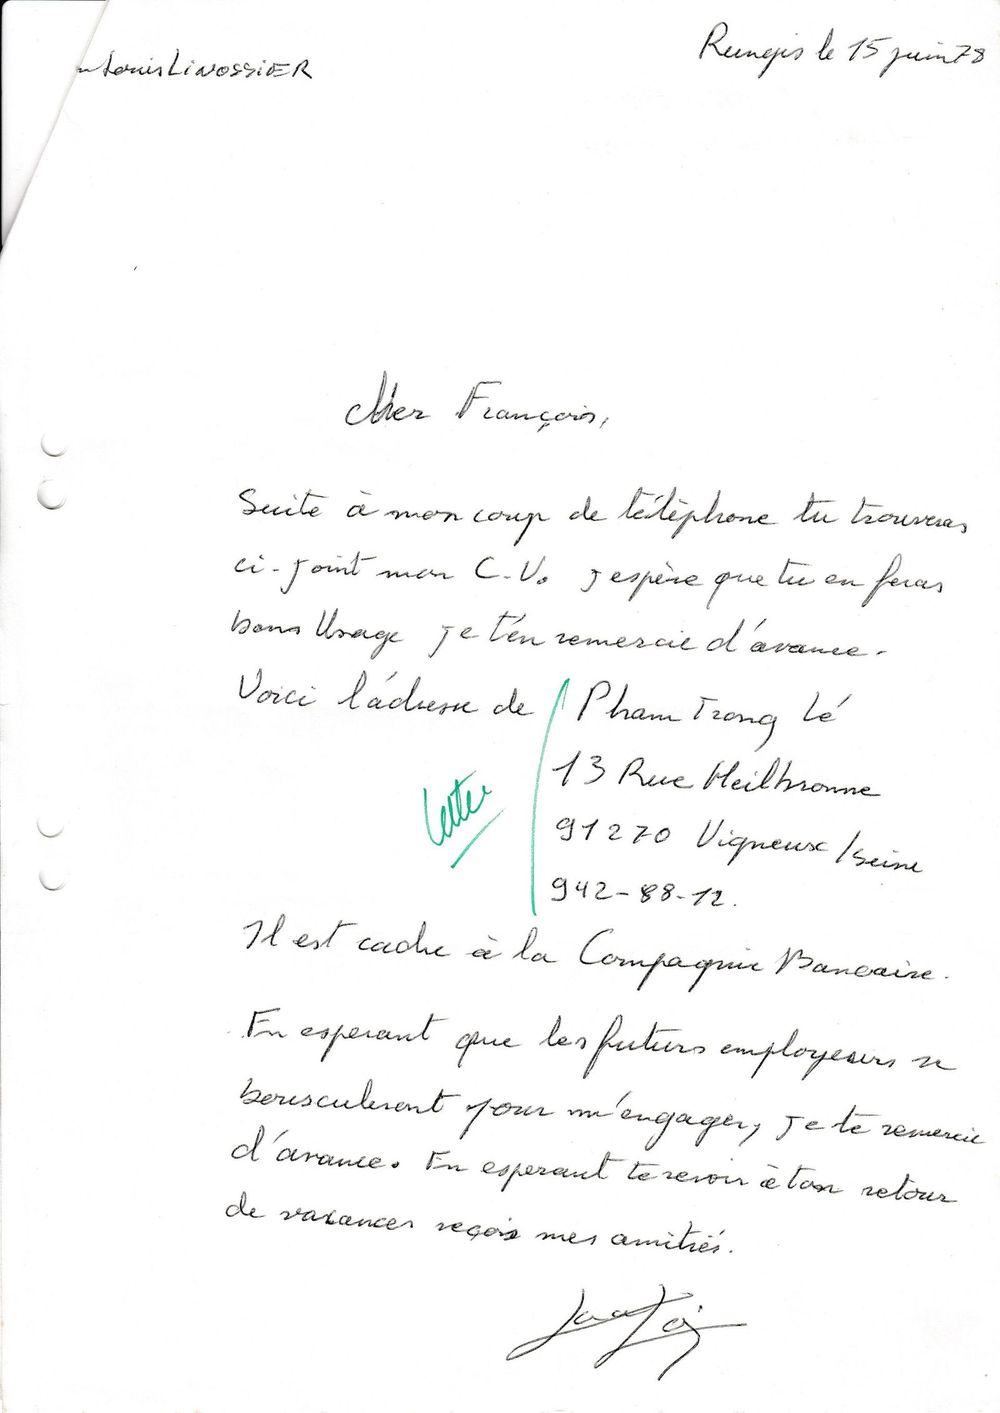 n Louis LINOSSIER
Rungis le 15 juin 78
Cher François,
Suite à mon coup de téléphone tu trouveras
ci-joint mon C.V. j'espère que tu en feras
bons Usage je t'en remercie d'avance.
Voici l'adresse de Pham Trong Lé
13 Rue Heilbronne
91270 Vigneux /seine
lettre
942-88-12.
Il est cadre à la Compagnie Bancaire.
En esperant que les futurs employeurs se
bousculeront pour m'engager, je te remercie
d'avance. En esperant te revoir à ton retour
de vacances reçois mes amitiés.